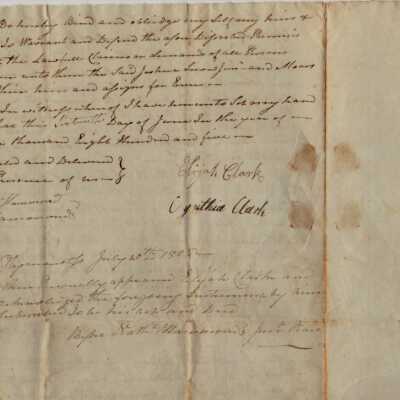 Do hereby Bind and obblidge my Self my heirs &
To Warrant and Defend the afore Described Premis
the Lawfull Claims or demands of all Persons
unto them the Said Joshua and Moses
their heirs and assigns for Ever —
In witness whereof I have hereunto Set my hand
this Day of June In the year of
thousand Eight Hundred and five —
and Delivered
Presence of us
Elijah Clark
Cynthia Clark
July 20th 1805
Personally appeared Elijah Clark and
acknowledged the foregoing Instrument by him
Subscribed to be his act and Deed
Before Nathl Hammond Just Peace